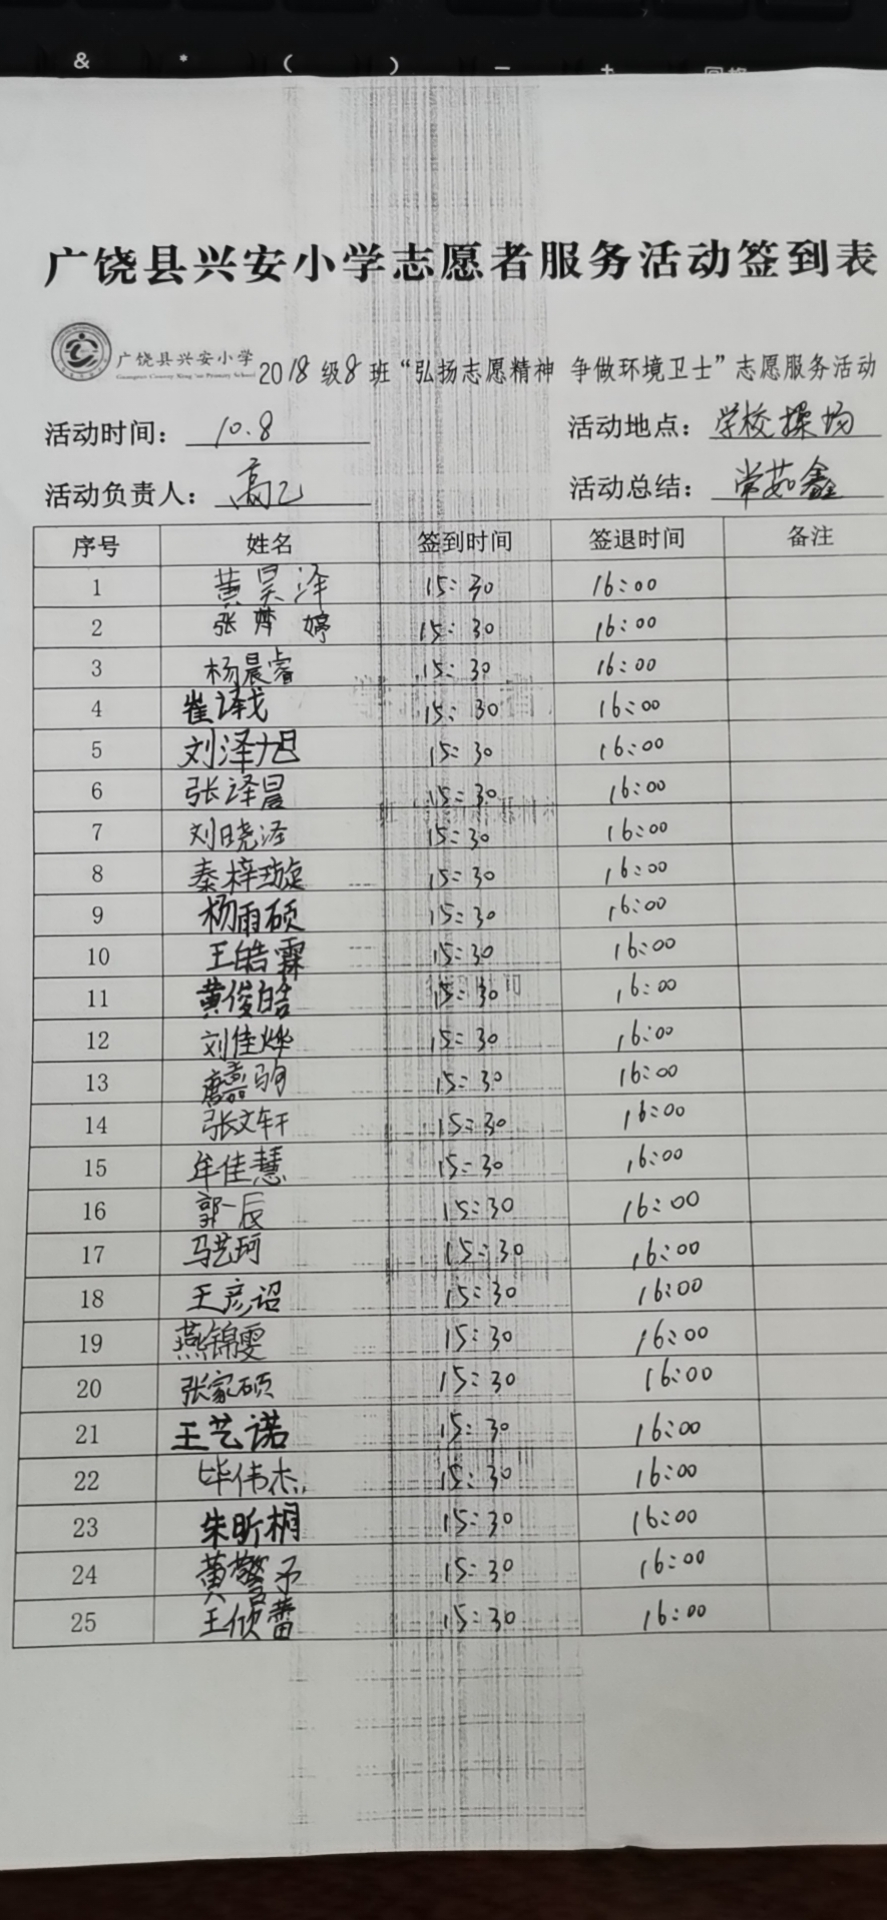 & * ( ) — +
广饶县兴安小学志愿者服务活动签到表
广饶县兴安小学 2018级8班“弘扬志愿精神 争做环境卫士”志愿服务活动
活动时间：10.8 活动地点：学校操场
活动负责人：高乙 活动总结：常茹鑫
序号 姓名 签到时间 签退时间 备注
1 黄昊泽 15:30 16:00
2 张梦婷 15:30 16:00
3 杨晨睿 15:30 16:00
4 崔译戈 15:30 16:00
5 刘泽旭 15:30 16:00
6 张译晨 15:30 16:00
7 刘晓泽 15:30 16:00
8 秦梓璇 15:30 16:00
9 杨雨硕 15:30 16:00
10 王皓霖 15:30 16:00
11 黄俊皓 15:30 16:00
12 刘佳烨 15:30 16:00
13 15:30 16:00
14 张文轩 15:30 16:00
15 牟佳慧 15:30 16:00
16 郭一辰 15:30 16:00
17 马艺珂 15:30 16:00
18 王彦诏 15:30 16:00
19 燕锦雯 15:30 16:00
20 张家硕 15:30 16:00
21 王艺诺 15:30 16:00
22 毕伟杰 15:30 16:00
23 朱昕桐 15:30 16:00
24 黄警予 15:30 16:00
25 王欣蕾 15:30 16:00